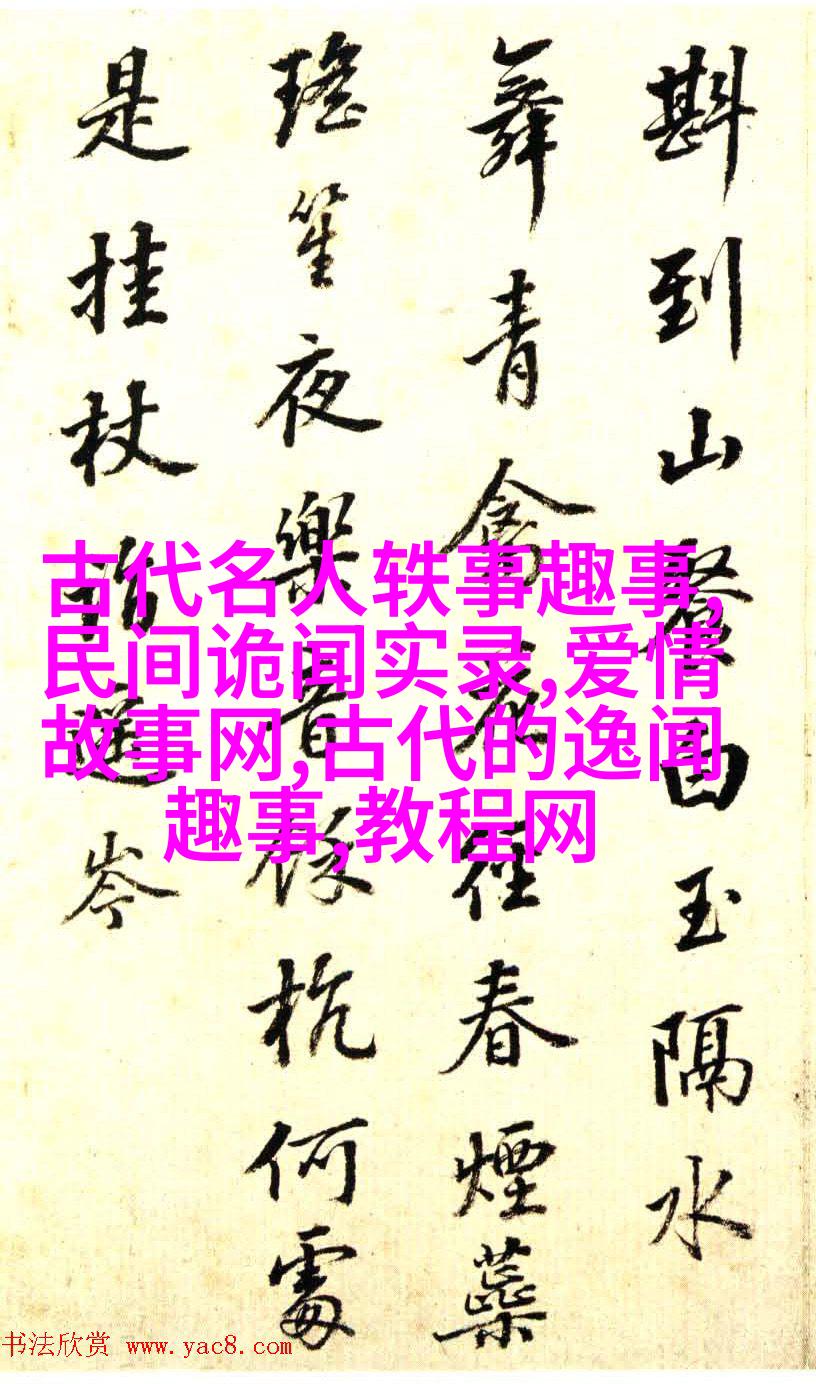 斟到山白玉隔水
舞青禽徑春煙蘂
瑤笙夜樂音餘杭何處
是挂杖岑
古代名人轶事趣事,
民间诡闻实录,爱情
故事网,古代的逸闻
趣事,教程网
书法欣赏 www.yac8.com